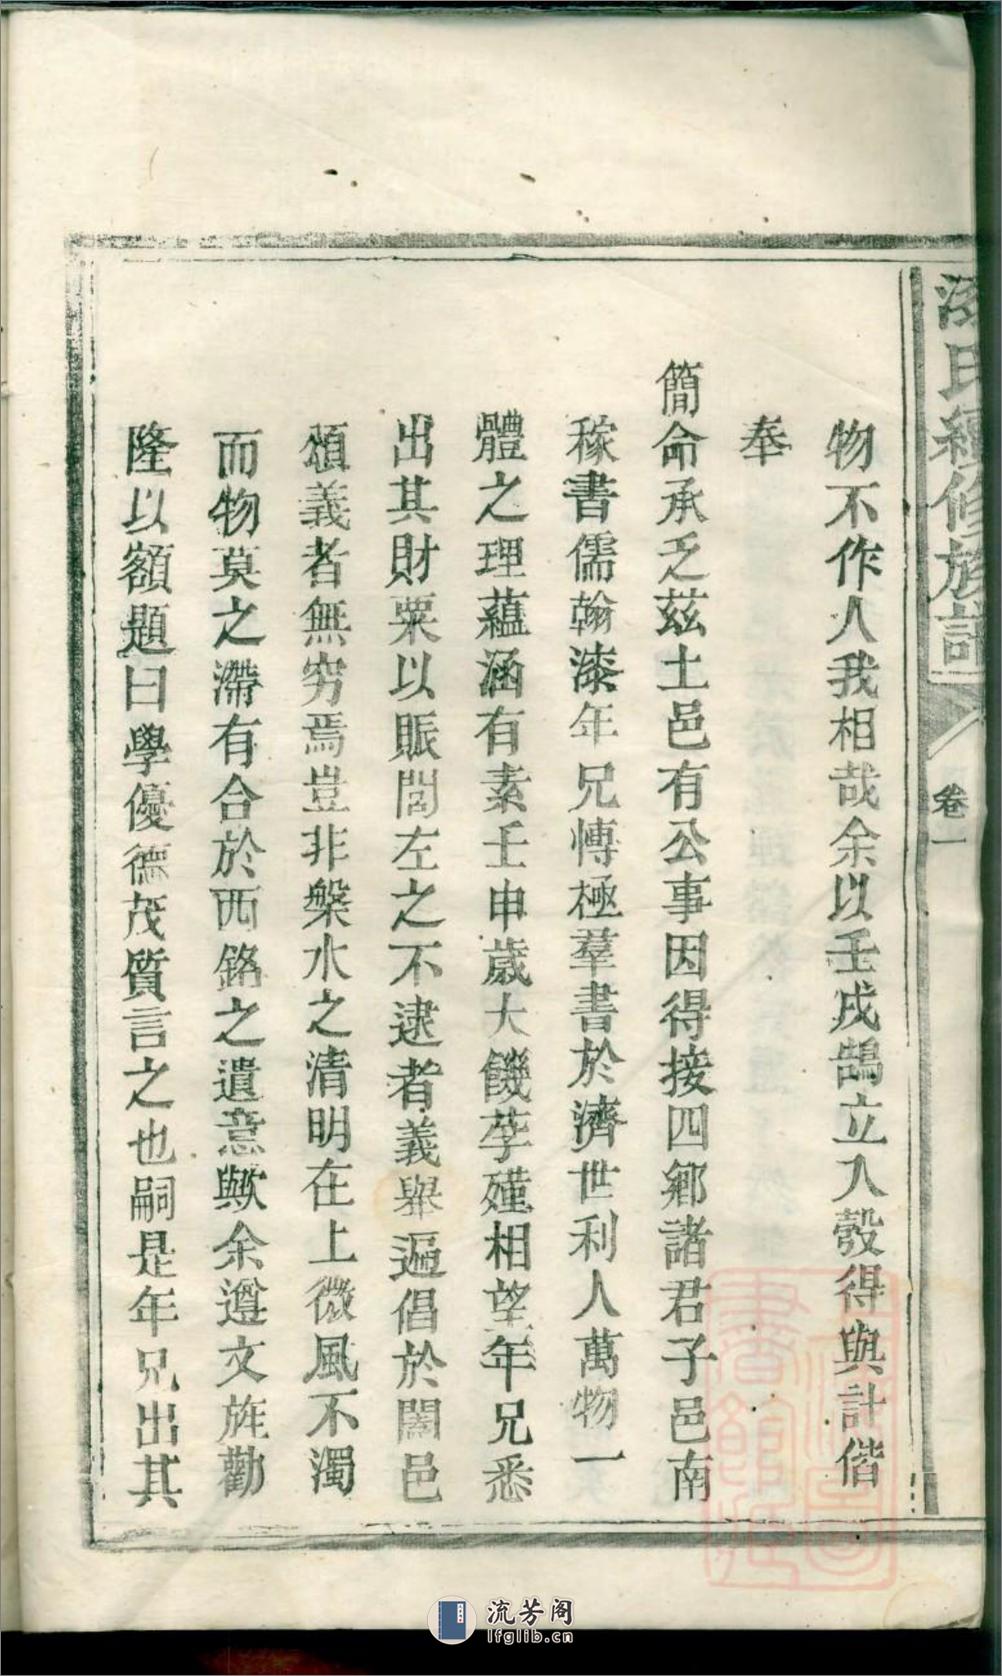 漆氏續修族譜
卷一
物不作人我相哉余以壬戌鵠立入彀得與計偕
奉
簡命承乏茲土邑有公事因得接四鄉諸君子邑南
稼書儒翰漆年兄慱極羣書於濟世利人萬物一
體之理蘊涵有素壬申歲大饑莩殣相望年兄悉
出其財粟以賑閭左之不逮者義舉遍倡於闔邑
頌義者無穷焉豈非槃水之清明在上微風不濁
而物莫之滯有合於西銘之遺意歟余遵文旌勸
隆以額題曰學優德茂質言之也嗣是年兄出其
流芳阁
lfglib.cn